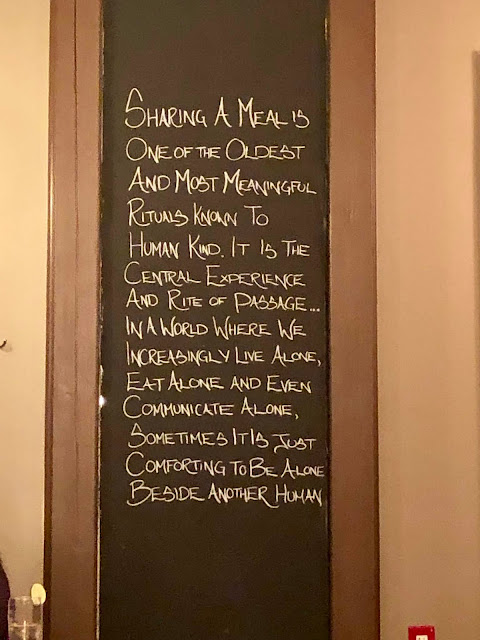 Sharing A Meal is
One of the Oldest
And Most Meaningful
Rituals Known To
Human Kind. It Is The
Central Experience
And Rite of Passage...
In A World Where We
Increasingly Live Alone,
Eat Alone and Even
Communicate Alone,
Sometimes It Is Just
Comforting To Be Alone
Beside Another Human